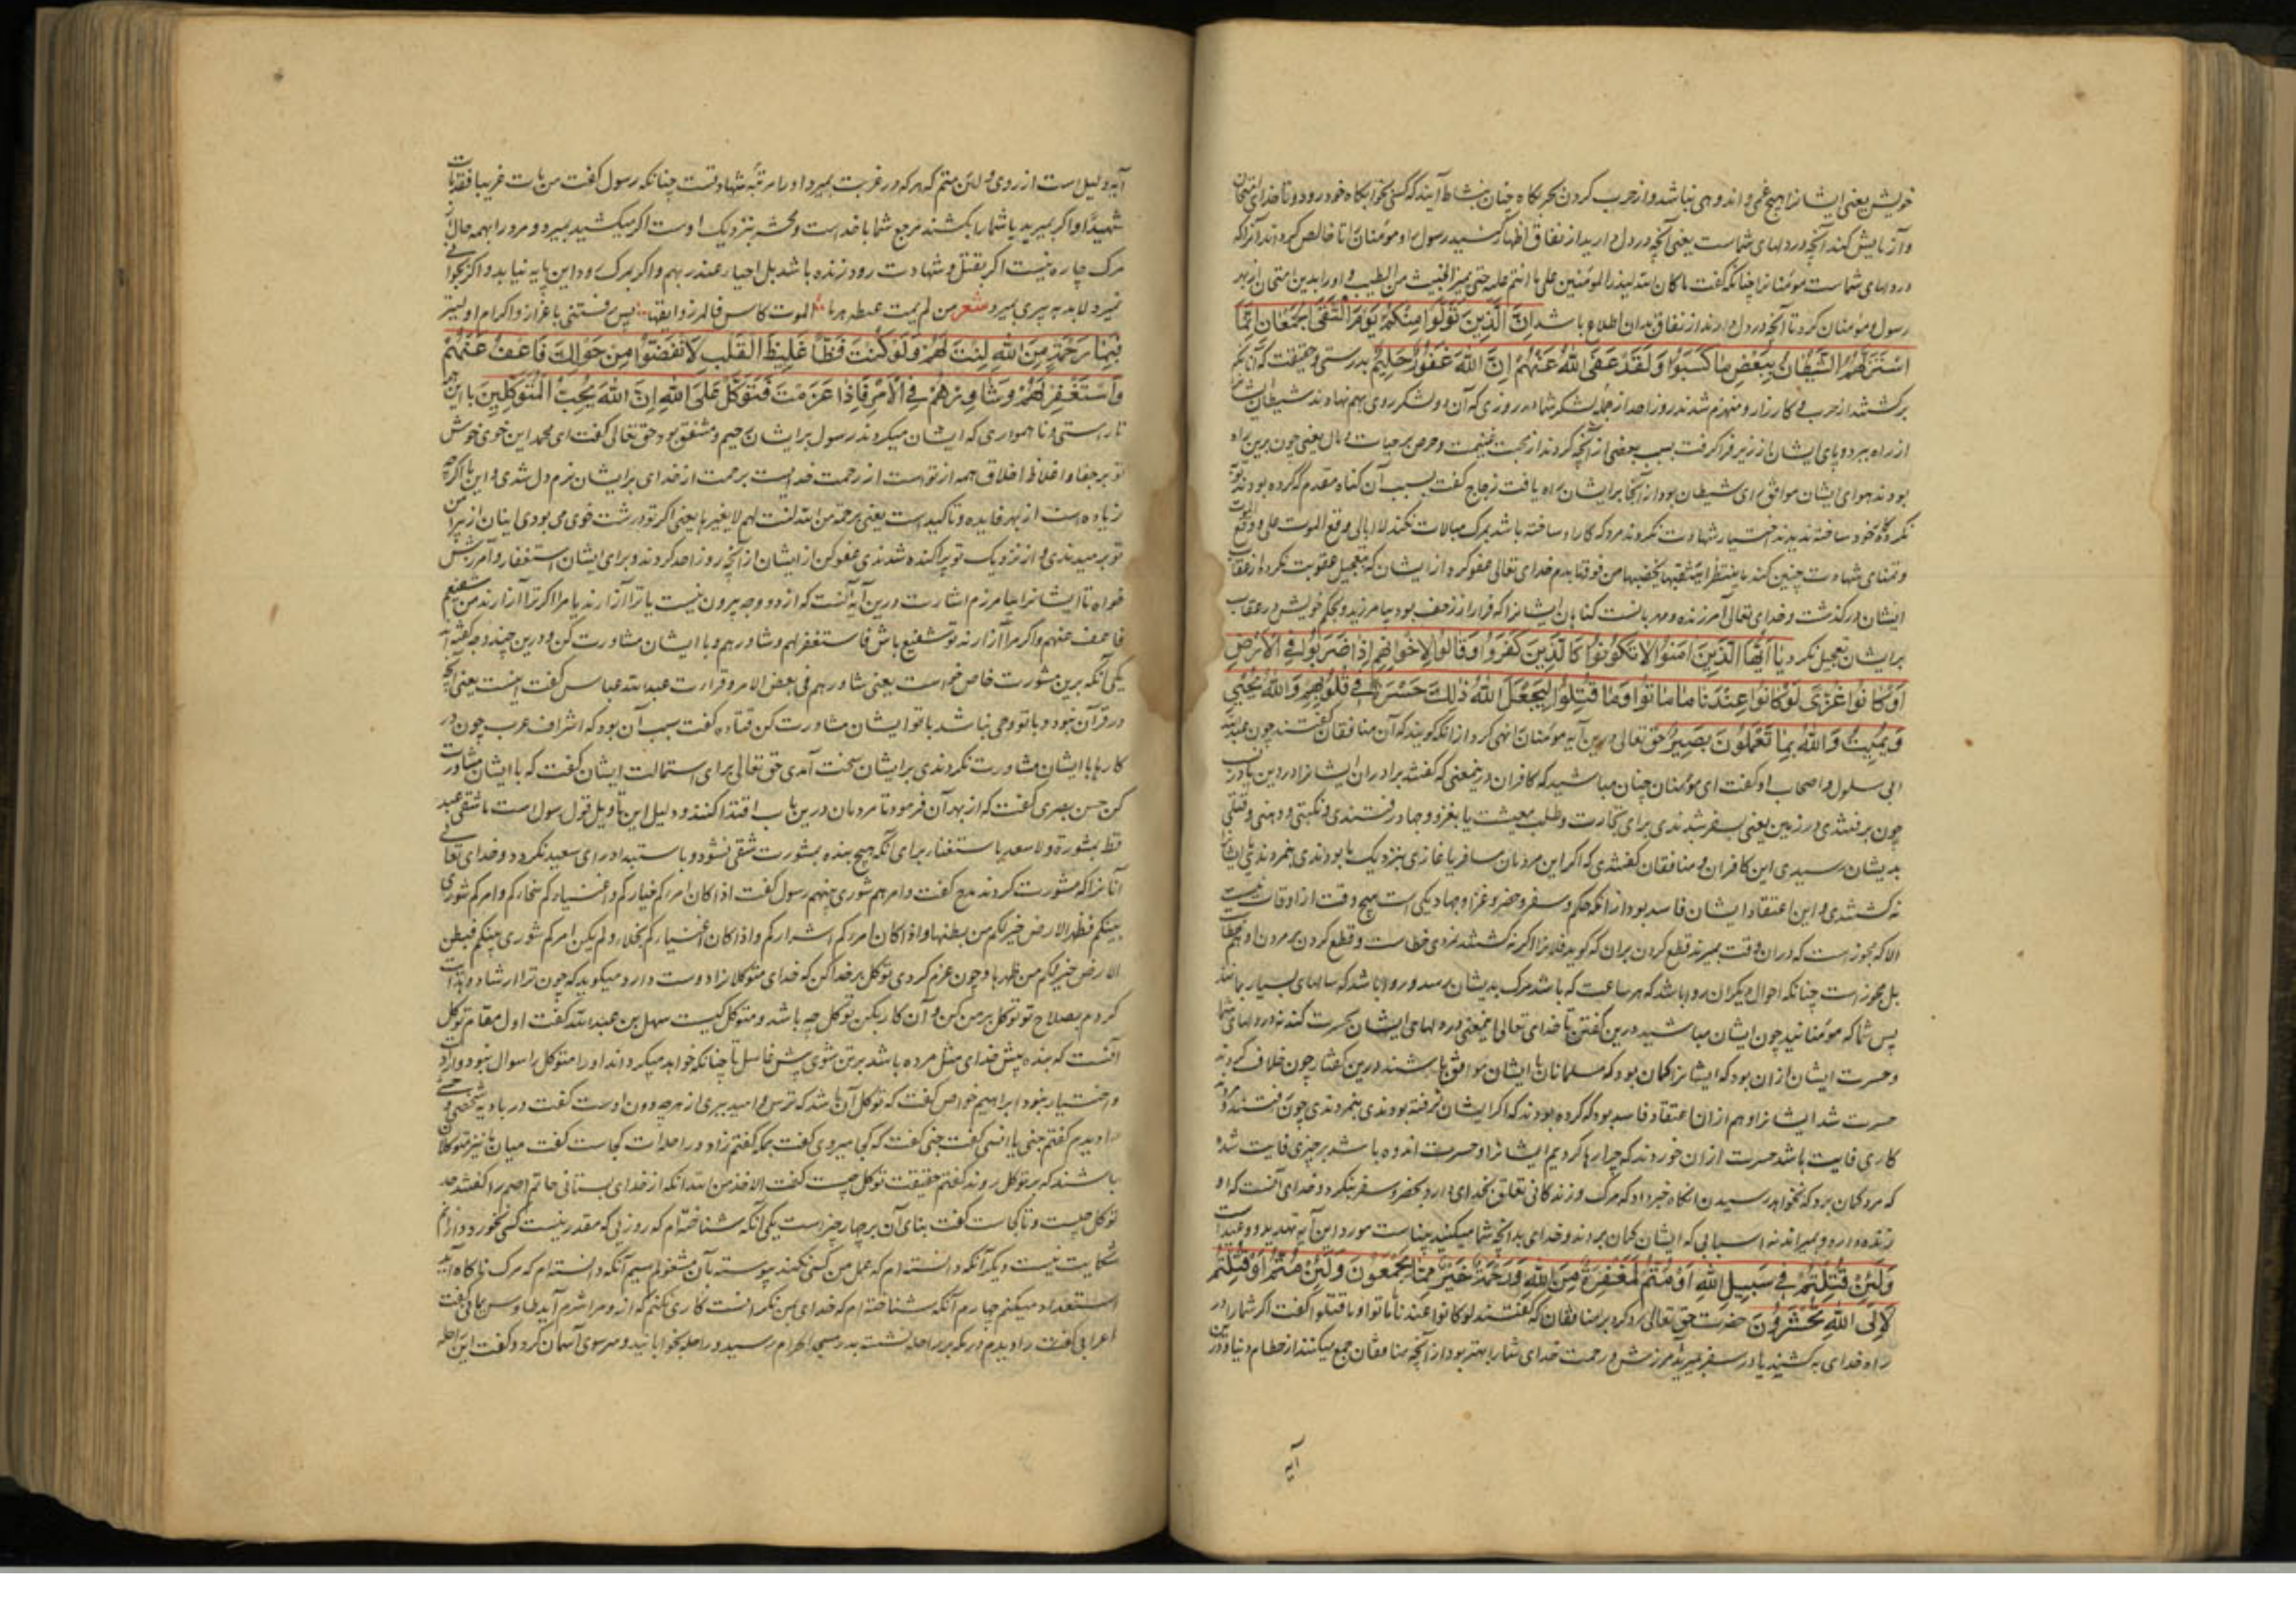 خویش یعنی ایشانرا هیچ غمی و اندوهی نباشد و از حرب کردن بحربکاه چنان بنشاط آیند که کسی بخوابکاه خود رود و تا خدای امتحان
و آزمایش کند آنچه در دلهای شماست یعنی آنچه در دل دارید از نفاق اظهار کنید رسول او مؤمنان را تا خالص کرداند آنرا که
در دلهای شماست مؤمنانرا چنانکه گفت ما کان الله لیذر المؤمنین علی ما انتم علیه حتی یمیز الخبیث من الطیب و او را بدین امتحان از بهر
رسول و مؤمنان کرد تا آنچه در دل دارند از نفاق بدان اطلاع باشد اِنَّ الَّذِینَ تَوَلَّوْا مِنْکُمْ یَوْمَ الْتَقَی الْجَمْعَانِ اِنَّمَا
اسْتَزَلَّهُمُ الشَّیْطَانُ بِبَعْضِ مَا کَسَبُوا وَلَقَدْ عَفَی اللهُ عَنْهُمْ اِنَّ اللهَ غَفُورٌ حَلِیمٌ بدرستی و حقیقت که آنانکه
برکشتند از حرب و کارزار و منهزم شدند روز احد از جمله لشکر شما در روزی که آن دو لشکر روی بهم نهادند شیطان ایشانرا
از راه ببرد و پای ایشان از زیر فرا گرفت بسبب بعضی از آنچه کردند از محبت غنیمت و حرص بر حیات و مال یعنی چون برین راه
بودند هوای ایشان موافق رای شیطان بود از آنجا بر ایشان راه یافت زجاج گفت بسبب آن کناه مقدم که کرده بودند توبه
نکرده بخود ساخته ندیدند اختیار شهادت نکردند مرد که کار او ساخته باشد بمرک مبالات نکند لا ابالی وقع الموت علی و وقع
و تمنای شهادت چنین کند خدای تعالی عفو کرد از ایشان که بتعجیل عقوبت نکرد و از عقاب
ایشان درکذشت و خدای تعالی آمرزنده و مهربانست کناهان ایشانرا که فرار از زحف بود بیامرزید و بحکم خویش در عقاب
بر ایشان تعجیل نکرد یَا اَیُّهَا الَّذِینَ اٰمَنُوا لَا تَکُونُوا کَالَّذِینَ کَفَرُوا وَقَالُوا لِاِخْوَانِهِمْ اِذَا ضَرَبُوا فِی الْاَرْضِ
اَوْ کَانُوا غُزًّی لَوْ کَانُوا عِنْدَنَا مَا مَاتُوا وَمَا قُتِلُوا لِیَجْعَلَ اللهُ ذٰلِکَ حَسْرَةً فِی قُلُوبِهِمْ وَاللهُ یُحْیِی
وَیُمِیتُ وَاللهُ بِمَا تَعْمَلُونَ بَصِیرٌ حق تعالی درین آیه مؤمنانرا نهی کرد از آنکه گویند که آن منافقان گفتند چون عبدالله
ابی سلول و اصحاب او گفت ای مؤمنان چنان مباشید که کافران درین معنی که گفتند برادران ایشانرا در دین یا در نسب
چون برفتندی در زمین یعنی بسفر شدندی برای تجارت و طلب معیشت یا بغزو و جهاد رفتندی و نکبتی و وهنی و قتلی
بدیشان رسیدی این کافران و منافقان گفتندی که اگر این مردمان مسافر یا غازی بنزدیک ما بودندی بنمردندی و ایشانرا
نه کشتندی و این اعتقاد ایشان فاسد بود از آنکه حکم سفر و حضر و غزا و جهاد یکی است هیچ وقت از اوقات نیست
الا که مجوز است که در آن وقت بمیرند قطع کردن بر آن که گوید فلانرا اگر نه کشتند نمردی خطاست و قطع کردن بر مردن او هم خطا
بل مجوز است چنانکه احوال دیگران روا باشد که هر ساعت که باشد مرک بدیشان رسد و روا باشد که سالهای بسیار بمانند
پس شما که مؤمنانید چون ایشان مباشید درین گفتن تا خدای تعالی این معنی در دلهای ایشان حسرت کند نه در دلهای شما
و حسرت ایشان از آن بود که ایشانرا کمان بود که مسلمانان با ایشان موافق باشند درین گفتار چون خلاف کردند
حسرت شد ایشانرا و هم از آن اعتقاد فاسد بود که کرده بودند که اگر ایشان نرفته بودندی بنمردندی چون رفتند و مردند
کاری فایت باشد حسرت از آن خوردند که چرا رها کردیم ایشانرا و حسرت اندوه باشد بر چیزی فایت شده
که مرد کمان برد که نخواهد رسیدن آنکاه خبر داد که مرک و زندکانی تعلق بخدای دارد بحضر و سفر بنکردد و خدای آنست که او
زنده دارد و میراند نه اسبابی که ایشان کمان بردند و خدای بدآنچه شما میکنید بیناست مورد این آیه تهدید و وعید است
وَلَئِنْ قُتِلْتُمْ فِی سَبِیلِ اللهِ اَوْ مُتُّمْ لَمَغْفِرَةٌ مِنَ اللهِ وَرَحْمَةٌ خَیْرٌ مِمَّا یَجْمَعُونَ وَلَئِنْ مُتُّمْ اَوْ قُتِلْتُمْ
لَاِلَی اللهِ تُحْشَرُونَ حضرت حق تعالی رد کرد بر منافقان که گفتند لو کانوا عندنا ما ماتوا و ما قتلوا گفت اگر شما را در
راه خدای بکشند یا در سفر بمیرید آمرزش و رحمت خدای شما را بهتر بود از آنچه منافقان جمع میکنند از حطام دنیا و درین
آیه
آیه دلیل است از روی و لئن متم که هر که در غربت بمیرد او را مرتبه شهادتست چنانکه رسول گفت من مات غریبا فقد مات
شهیدا و اگر بمیرید یا شما را بکشند مرجع شما با خداست و محشر بنزدیک اوست اگر میکشید بمیرد و مرد را بهمه حال از
مرک چاره نیست اگر بقتل و شهادت رود زنده باشد بل احیاء عند ربهم و اگر بمرک رود این پایه نیابد و اگر بجوانی
نمیرد لابد به پیری بمیرد شعر من لم یمت عبطة هرما الموت کاس فالمرء ذایقها پس رفتنی باعزاز و اکرام اولیتر
فَبِمَا رَحْمَةٍ مِنَ اللهِ لِنْتَ لَهُمْ وَلَوْ کُنْتَ فَظًّا غَلِیظَ الْقَلْبِ لَانْفَضُّوا مِنْ حَوْلِکَ فَاعْفُ عَنْهُمْ
وَاسْتَغْفِرْ لَهُمْ وَشَاوِرْهُمْ فِی الْاَمْرِ فَاِذَا عَزَمْتَ فَتَوَکَّلْ عَلَی اللهِ اِنَّ اللهَ یُحِبُّ الْمُتَوَکِّلِینَ با این همه
ناراستی و ناهمواری که ایشان میکردند رسول بر ایشان رحیم و مشفق بود حق تعالی گفت ای محمد این خوی خوش
تو بر جفا و اغلاظ اخلاق همه از تو است از رحمت خداییست برحمت از خدای بر ایشان نرم دل شدی و این ما اگرچه
زیاده است از بهر فایده و تاکید است یعنی برحمة من الله لنت لهم لا بغیرها یعنی اگر تو درشت خوی می بودی اینان از پیرامن
تو برمیدندی و از نزدیک تو پراکنده شدندی عفو کن از ایشان از آنچه روز احد کردند و برای ایشان استغفار و آمرزش
خواه تا ایشانرا بیامرزم اشارت درین آیه آنست که از دو وجه بیرون نیست یا ترا آزارند یا مرا اگر ترا آزارند من شفیعم
فاعف عنهم و اگر مرا آزارند تو شفیع باش فاستغفر لهم و شاورهم و با ایشان مشاورت کن و درین چند وجه گفته اند
یکی آنکه برین مشورت خاص خواست یعنی شاورهم فی بعض الامر و قراءت عبدالله عباس گفت اینست یعنی آنچه
در قرآن نبود و با تو وحی نباشد با تو ایشان مشاورت کن قتاده گفت سبب آن بود که اشراف عرب چون در
کارها با ایشان مشاورت نکردندی بر ایشان سخت آمدی حق تعالی برای استمالت ایشان گفت که با ایشان مشاورت
کن حسن بصری گفت که از بهر آن فرمود تا مردمان درین باب اقتدا کنند و دلیل این تاویل قول رسول است ما شقی عبد
قط بمشورة و لا سعد باستغناء برای آنکه هیچ بنده بمشورت شقی نشود و باستبداد رای سعید نکردد و خدای تعالی
آنانرا که مشورت کردند مدح گفت و امرهم شوری بینهم رسول گفت اذا کان امراءکم خیارکم و اغنیاءکم سمحاءکم و امرکم شوری
بینکم فظهر الارض خیر لکم من بطنها و اذا کان امراءکم اشرارکم و اذا کان اغنیاءکم بخلاء و لم یکن امرکم شوری بینکم فبطن
الارض خیر لکم من ظهرها و چون عزم کردی توکل بر خدا کن که خدای متوکلانرا دوست دارد میکوید که چون ترا ارشاد و هدایت
کردم بصلاح تو توکل بر من کن و آن کار بکن توکل چه باشد و متوکل کیست سهل بن عبدالله گفت اول مقام توکل
آنست که بنده پیش خدای مثل مرده باشد بر تن شوی پیش غاسل تا چنانکه خواهد میکرداند او را متوکل را سوال نبود و ارادت
و اختیار نبود ابراهیم خواص گفت که توکل آن باشد که ترس و امید ببری از هرچه دون اوست گفت در بادیه شخصی وحشی
را دیدم گفتم جنی یا انسی گفت جنی گفتم که کجا میروی گفت بمکه گفتم زاد و راحلت کجاست گفت میان ما نیز متوکلان
باشند که بر توکل روند گفتم حقیقت توکل چیست گفت الاخذ من الله آنکه از خدای بستانی حاتم اصم را گفتند حد
توکل چیست و تا کجاست گفت بنای آن بر چهار چیز است یکی آنکه شناخته ام که روزی که مقدر نیست کس نخورد و از آنم
شکایت نیست دیگر آنکه دانسته ام که عمل من کسی نکند پیوسته بآن مشغولم سیم آنکه دانسته ام که مرک ناکاه آید
استعداد میکنم چهارم آنکه شناخته ام که خدای بمن نکرانست کاری نکنم که از او مرا شرم آید طاوس یمانی گفت
اعرابی را دیدم در مکه بر راحله نشسته بدر مسجد الحرام رسید و راحله بخوابانید و سر سوی آسمان کرد و گفت این راحله